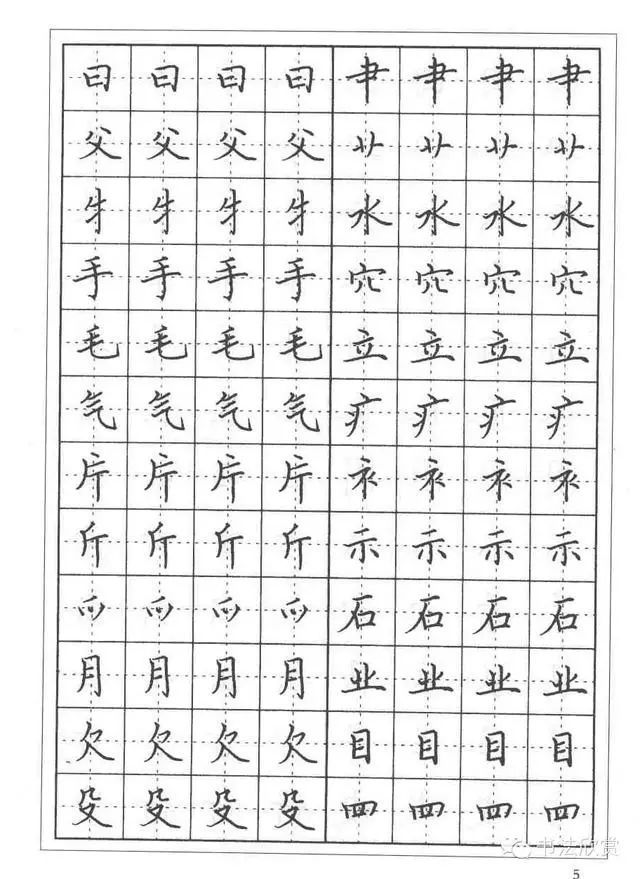 曰 曰 曰 曰 肀 肀 肀 肀
父 父 父 父
牜 牜 牜 牜 水 水 水 水
手 手 手 手 穴 穴 穴 穴
毛 毛 毛 毛 立 立 立 立
气 气 气 气 疒 疒 疒 疒
片 片 片 片 衤 衤 衤 衤
斤 斤 斤 斤 示 示 示 示
爫 爫 爫 爫 石 石 石 石
月 月 月 月 业 业 业 业
欠 欠 欠 欠 目 目 目 目
殳 殳 殳 殳 罒 罒 罒 罒
书法欣赏
5